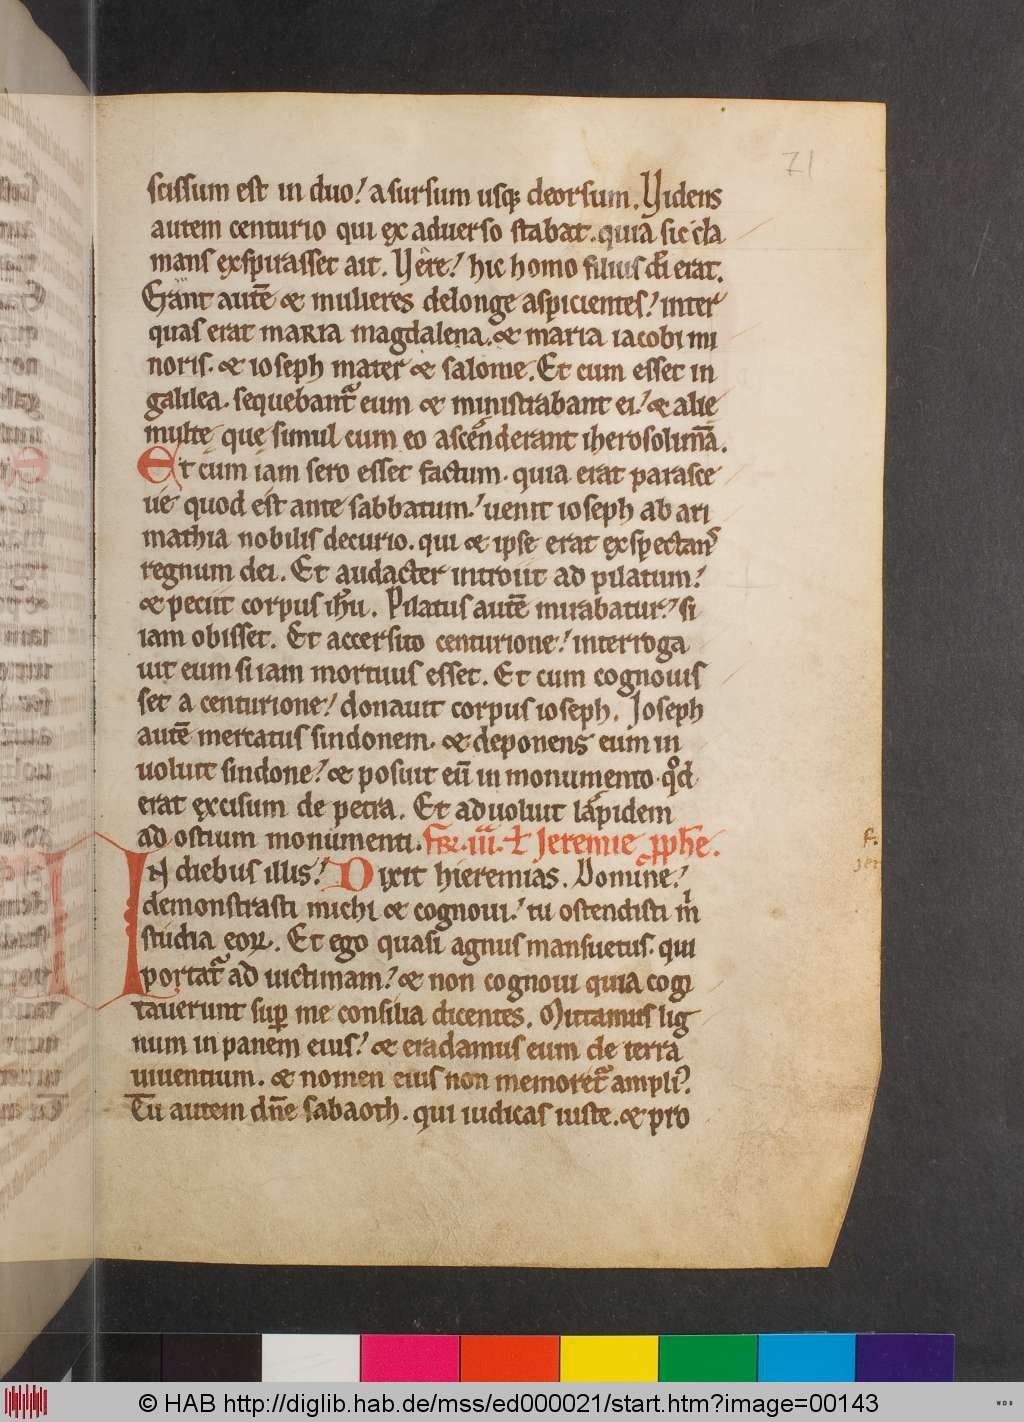 71
scissum est in duo! a sursum usq; deorsum. Videns
autem centurio qui ex aduerso stabat. quia sic cla
mans exspirasset ait. Vere! hic homo filius di erat.
Erant autē & mulieres delonge aspicientes! inter
quas erat maria magdalena. & maria iacobi mi
noris. & ioseph mater & salome. Et cum esset in
galilea. sequebant eum & ministrabant ei! & alie
multe que simul cum eo ascenderant iherosolimā.
Et cum iam sero esset factum. quia erat parasce
ue quod est ante sabbatum! uenit ioseph ab ari
mathia nobilis decurio. qui & ipse erat exspectans
regnum dei. Et audacter introiit ad pilatum!
& peciit corpus ihu. Pilatus autē mirabatur! si
iam obisset. Et accersito centurione! interroga
uit eum si iam mortuus esset. Et cum cognouis
set a centurione! donauit corpus ioseph. Ioseph
autē mercatus sindonem. & deponens eum in
uoluit sindone! & posuit eū in monumento. qd
erat excisum de petra. Et aduoluit lapidem
ad ostium monumenti. fer. iii. Ł Jeremie pphe.
f.
jer
In diebus illis! Dixit hieremias. Domine!
demonstrasti michi & cognoui! tu ostendisti m
studia eoꝝ. Et ego quasi agnus mansuetus. qui
portat ad uictimam! & non cognoui quia cogi
tauerunt sup me consilia dicentes. Mittamus lig
num in panem eius! & eradamus eum de terra
uiuentium. & nomen eius non memoret ampli.
Tu autem dne sabaoth. qui iudicas iuste. & pro
© HAB http://diglib.hab.de/mss/ed000021/start.htm?image=00143